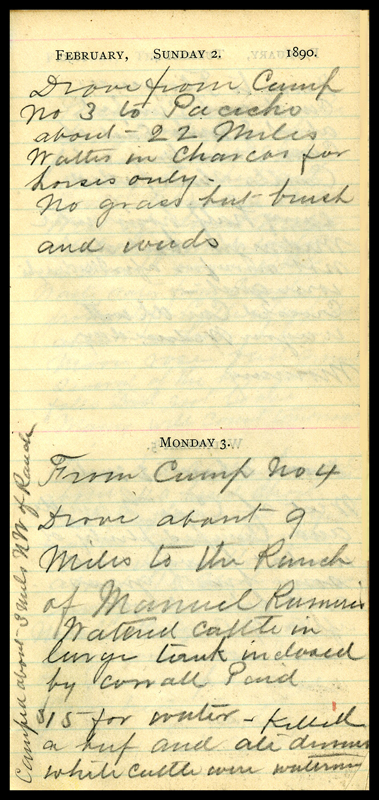 FEBRUARY, SUNDAY 2. 1890.
Drove from Camp
No 3 to Pacicho
about - 22 Miles
Watter in Charcos for
horses only -
No grass but brush
and weeds
MONDAY 3.
From Camp No 4
Drove about 9
Miles to the Ranch
of Manuel Rumiris
Watered cattle in
large tank inclosed
by corrall Paid
$15 for water - Killed
a beef and ate dinner
while cattle were watering
Camped about - 3 Miles NW of Ranch